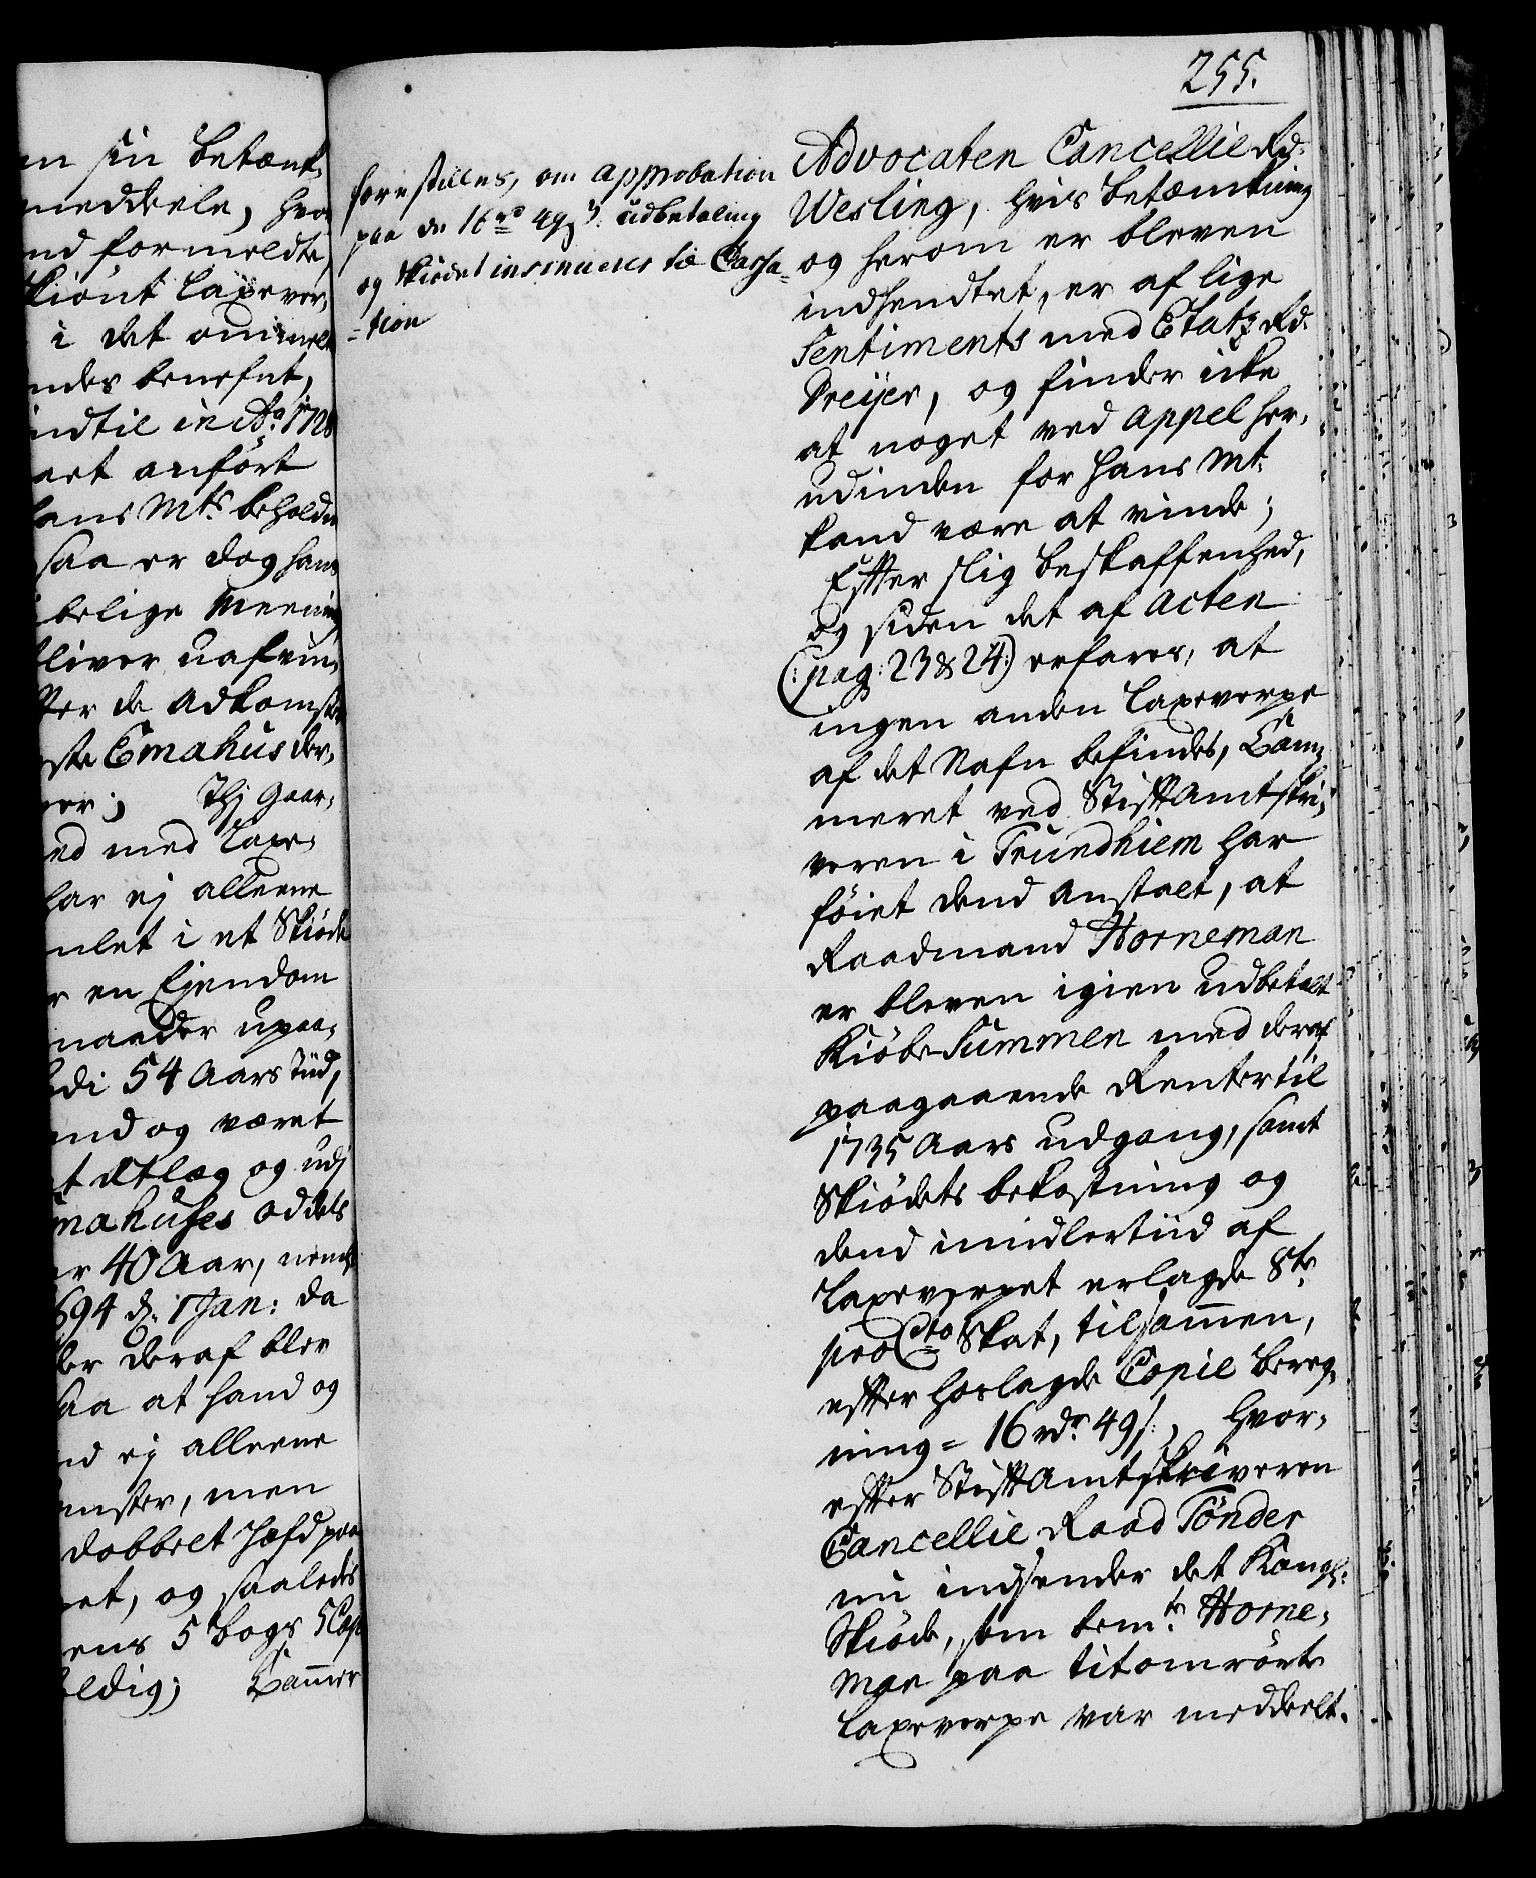 255.
en sin betænk-
meddeele, hvor
nd formeldte,
skiönt Laxever,
i det ommelt
ndes benefnt,
indtil in Ao 1728
aet anfört
hans Mts beholdn
saa er dog hans
belige Meening
bliver uafvin,
tter de Adkomster
ste Emahus der,
er; Thj gaar,
ed med Laxe,
har ej alleene
mlet i et Skiöde
r en Ejendom
maader upaa,
di 54 Aars Tiid,
end og været
t udlæg og udj
mahuses oddels
er 40 Aar, neml
694 d. 1 Jan: da
ler deraf blev
saa at hand og
nd ej alleene
mster, men
dobbelt Hæfd paa
et, og saaledes
ens 5 bogs 5 Cap
ldig; Cammer
forestilles, om approbation
paa de 16 rd 49 s. udbetaling
og skiödet insinueres til Cassa=
=tion
Advocaten Cancellie Rd.
Wesling, hvis betænkning
og herom er bleven
indhendtet, er af lige
Sentiments med Etatz Rd.
Dreijer, og finder icke
at noget ved appel her,
udinden for Hans Mt.
kand være at vinde;
Effter slig beskaffenhed,
og siden det af Acten
(: pag: 23 & 24:) erfares, at
ingen anden Laxeverpe
af det Nafn befindes, Cam,
meret ved Stifftamtskri,
veren i Trundhiem har
föiet dend anstalt, at
Raadmand Horneman
er bleven igien udbetalt
Kiöbe-Summen med deraf
paagaaende Renter til
1735 Aars udgang, samt
Skiödets bekostning og
dend imidlertiid af
Laxeverpet erlagde 8te
pro Cto Skat, tilsammen,
effter hoslagde Copie bereg,
ning = 16 rdr. 49 s:, hvor,
effter Stifftamtskriveren
Cancellie Raad Tönder
nu indsender det Kongl:
Skiöde, som bemte. Horne,
man paa titomrörte
Laxeverpe var meddeelt.